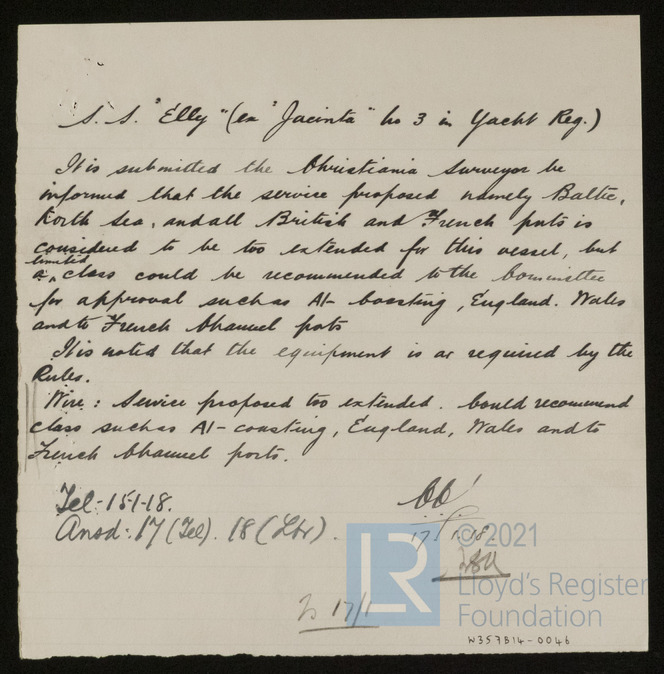 S. S. "Elly" (ex "Jacinta" No 3 in Yacht Reg.)
It is submitted the Christiania Surveyor be
informed that the service proposed namely Baltic,
North Sea, and all British and French ports is
considered to be too extended for this vessel, but
limited
a class could be recommended to the Committee
for approval such as A1- coasting, England. Wales
and to French Channel ports
It is noted that the equipment is as required by the
Rules.
Wire: Service proposed too extended. Could recommend
class such as A1-coasting, England, Wales and to
French Channel ports.
Tel:- 15-1-18.
Ansd:- 17 (Tel). 18 (Ltr).
17.1.18.
17/1
LR
© 2021
Lloyd's Register
Foundation
W357B14-0046